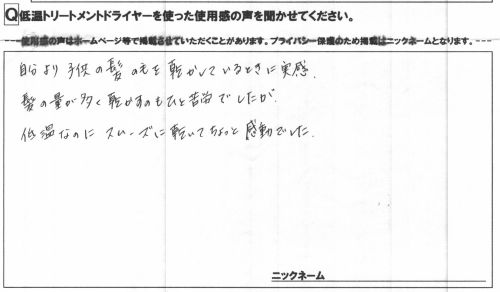 Q低温トリートメントドライヤーを使った使用感の声を聞かせてください。
使用感の声はホームページ等で掲載させていただくことがあります。プライバシー保護のため掲載はニックネームとなります。
自分より子供の髪の毛を乾かしているときに実感.
髪の量が多く乾かすのもひと苦労でしたが
低温なのにスムーズに乾いてちょっと感動でした.
ニックネーム